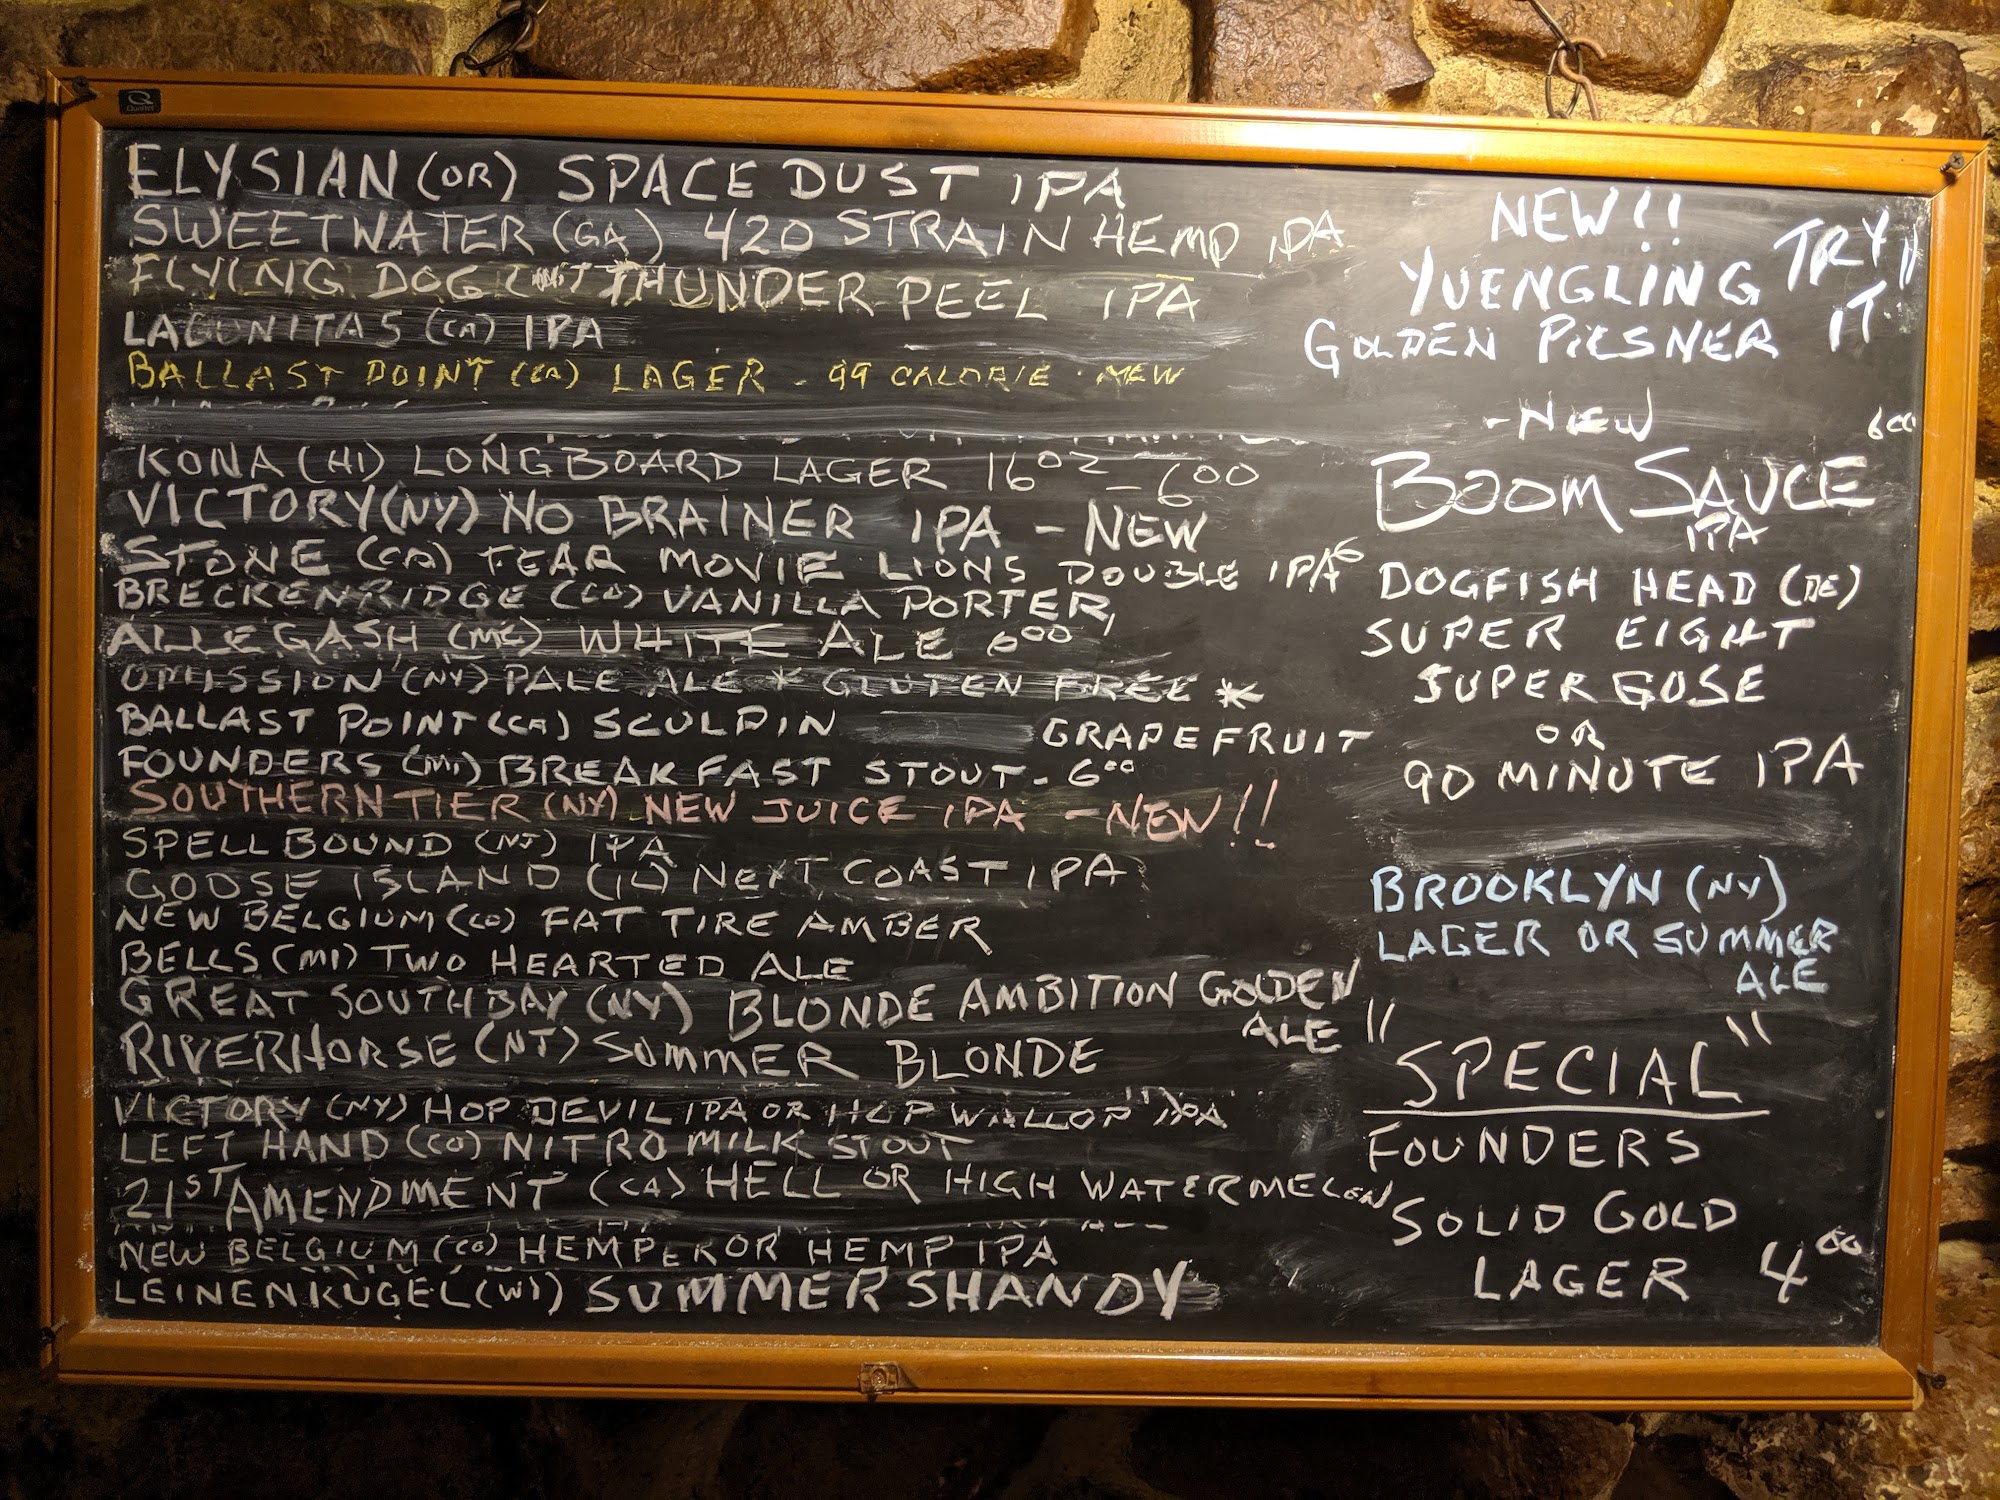 Quartet
ELYSIAN (OR) SPACE DUST IPA
SWEETWATER (GA) 420 STRAIN HEMP IPA
FLYING DOG THUNDER PEEL IPA
LAGUNITAS (CA) IPA
BALLAST POINT (CA) LAGER - 99 CALORIE - NEW
KONA (HI) LONGBOARD LAGER 16 OZ - 6 00
VICTORY (NY) NO BRAINER IPA - NEW
STONE (CA) FEAR MOVIE LIONS DOUBLE IPA 6
BRECKENRIDGE (CO) VANILLA PORTER,
ALLEGASH (ME) WHITE ALE 6 00
OMISSION (NY) PALE ALE * GLUTEN FREE *
BALLAST POINT (CA) SCULPIN GRAPEFRUIT
FOUNDERS (MI) BREAKFAST STOUT - 6 00
SOUTHERN TIER (NY) NEW JUICE IPA - NEW!!
SPELLBOUND (NJ) IPA
GOOSE ISLAND (IL) NEXT COAST IPA
NEW BELGIUM (CO) FAT TIRE AMBER
BELLS (MI) TWO HEARTED ALE
GREAT SOUTH BAY (NY) BLONDE AMBITION GOLDEN
ALE
RIVERHORSE (NJ) SUMMER BLONDE
VICTORY (NY) HOP DEVIL IPA OR HOP WALLOP IPA
LEFT HAND (CO) NITRO MILK STOUT
21ST AMENDMENT (CA) HELL OR HIGH WATERMELON
NEW BELGIUM (CO) HEMPEROR HEMP IPA
LEINENKUGEL (WI) SUMMER SHANDY
NEW!!
YUENGLING TRY
GOLDEN PILSNER IT!!
- NEW 6 00
BOOM SAUCE
IPA
DOGFISH HEAD (DE)
SUPER EIGHT
SUPER GOSE
OR
90 MINUTE IPA
BROOKLYN (NY)
LAGER OR SUMMER
ALE
"SPECIAL"
FOUNDERS
SOLID GOLD
LAGER 4 00